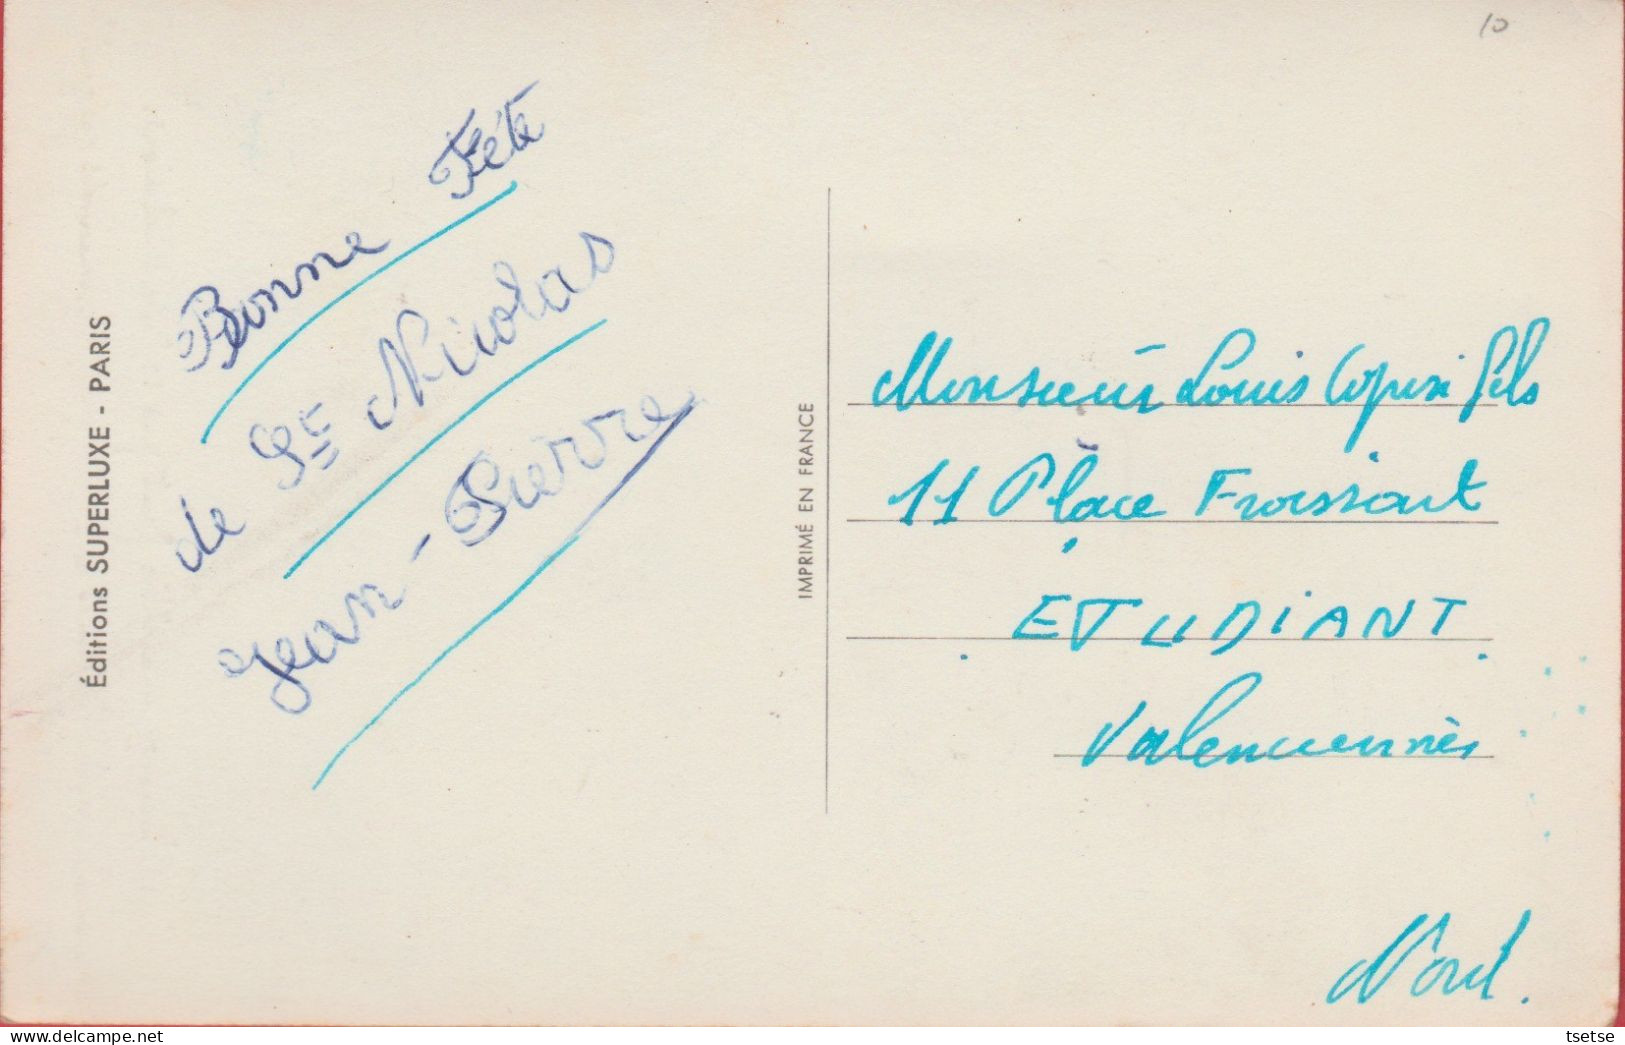 10
Bonne Fête
de St Nicolas
Jean-Pierre
Éditions SUPERLUXE - PARIS
IMPRIMÉ EN FRANCE
Monsieur Louis fils
11 Place Froissart
ETUDIANT
Valenciennes
Nord.
tsetse